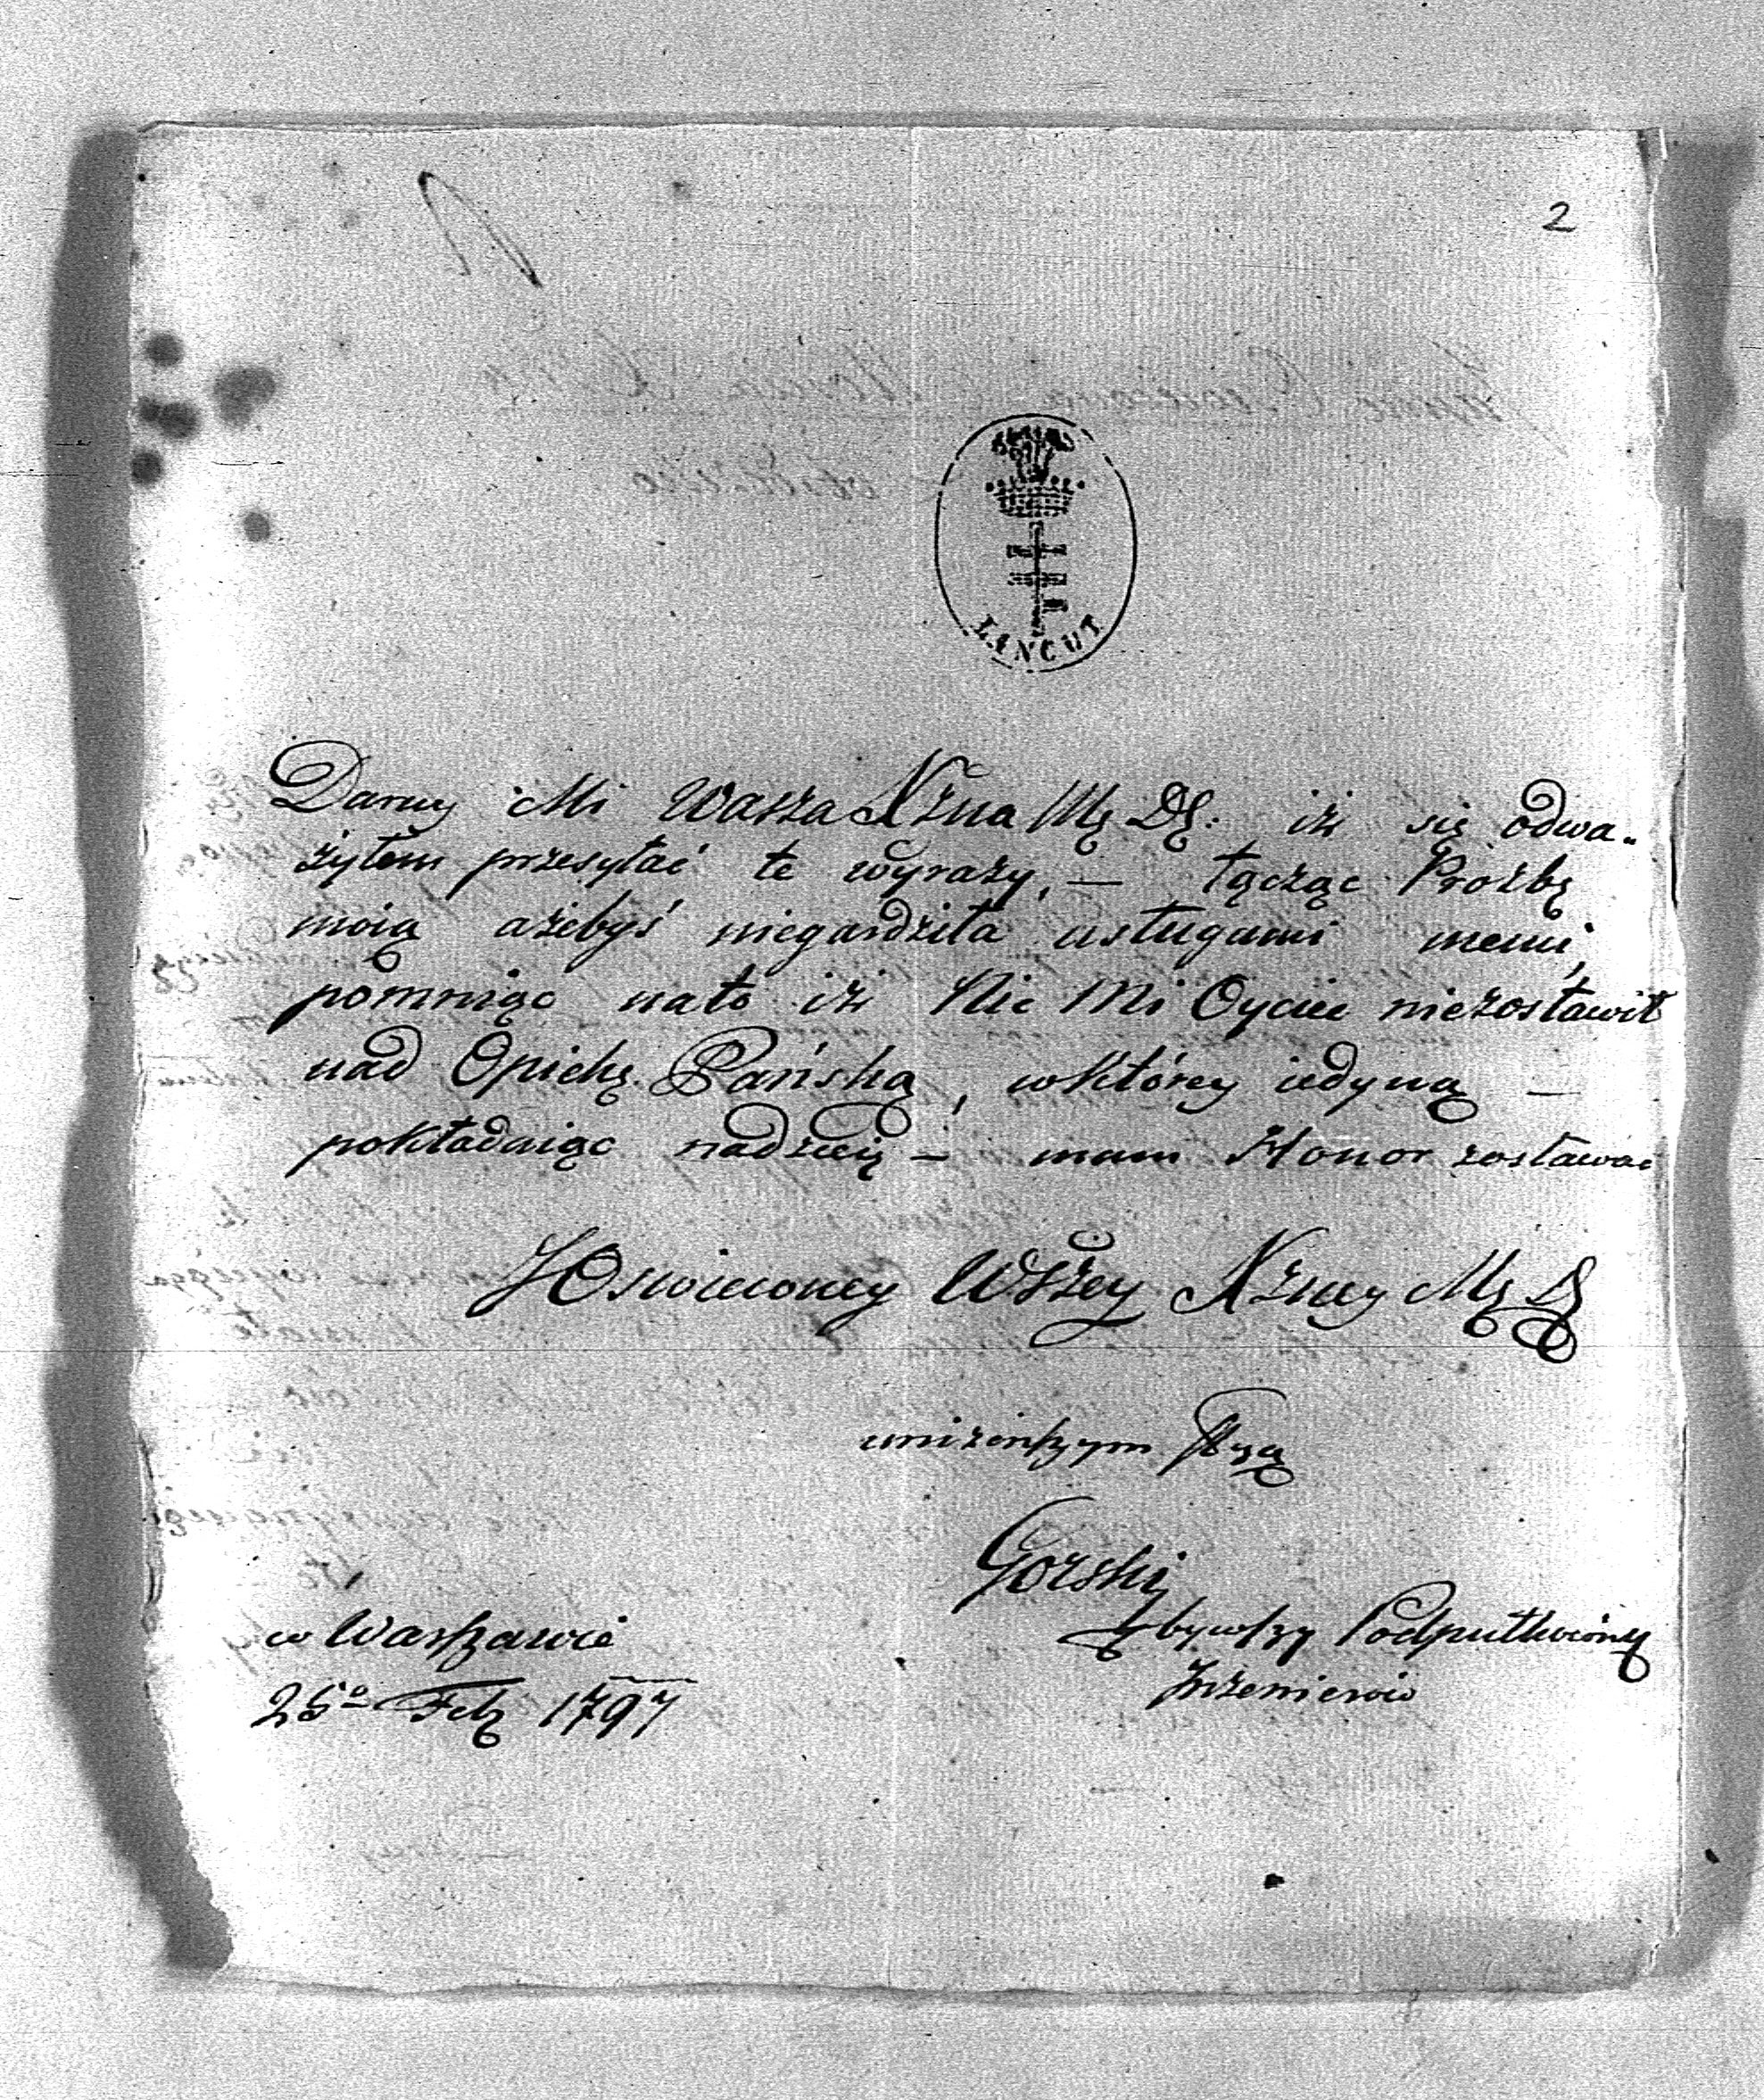 2
LANCUT
Daruy Mi Wasza Xzna Mę Dę: iż się odwa-
żyłem przesyłać te wyrazy, — łącząc Prożbę
moią ażebyś niegardziła usługami memi,
pomniąc nato iż Nic Mi Oyciec niezostawił
nad Opiekę Pańską, wktórey iedyną —
pokładaiąc nadzieię — mam Honor zostawać
JOswieconey WSzey Xzney Mę D
uniżonszym Sługą
Gorski
bywszy Podpułkowny
Inzenierow
w Warszawie
25º Feb 1797